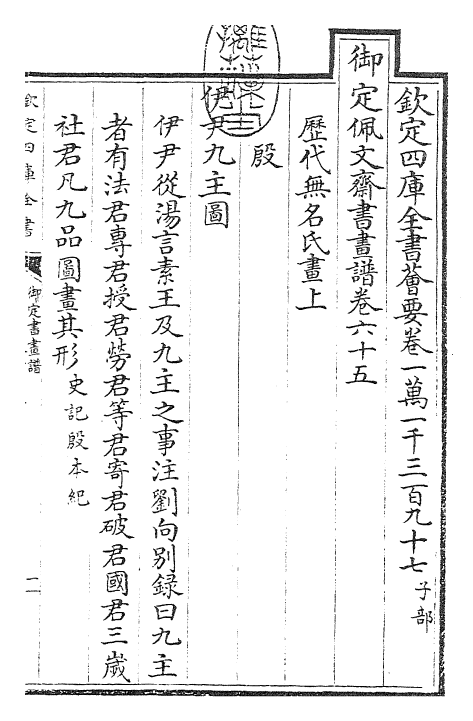 欽定四庫全書薈要卷一萬一千三百九十七子部
御定佩文齋書畫譜卷六十五
歷代無名氏畫上
殷
伊尹九主圖
伊尹從湯言素王及九主之事注劉向别録曰九主
者有法君專君授君勞君等君寄君破君國君三歲
社君凡九品圖畫其形史記殷本紀
欽定四庫全書
御定書畫譜
一